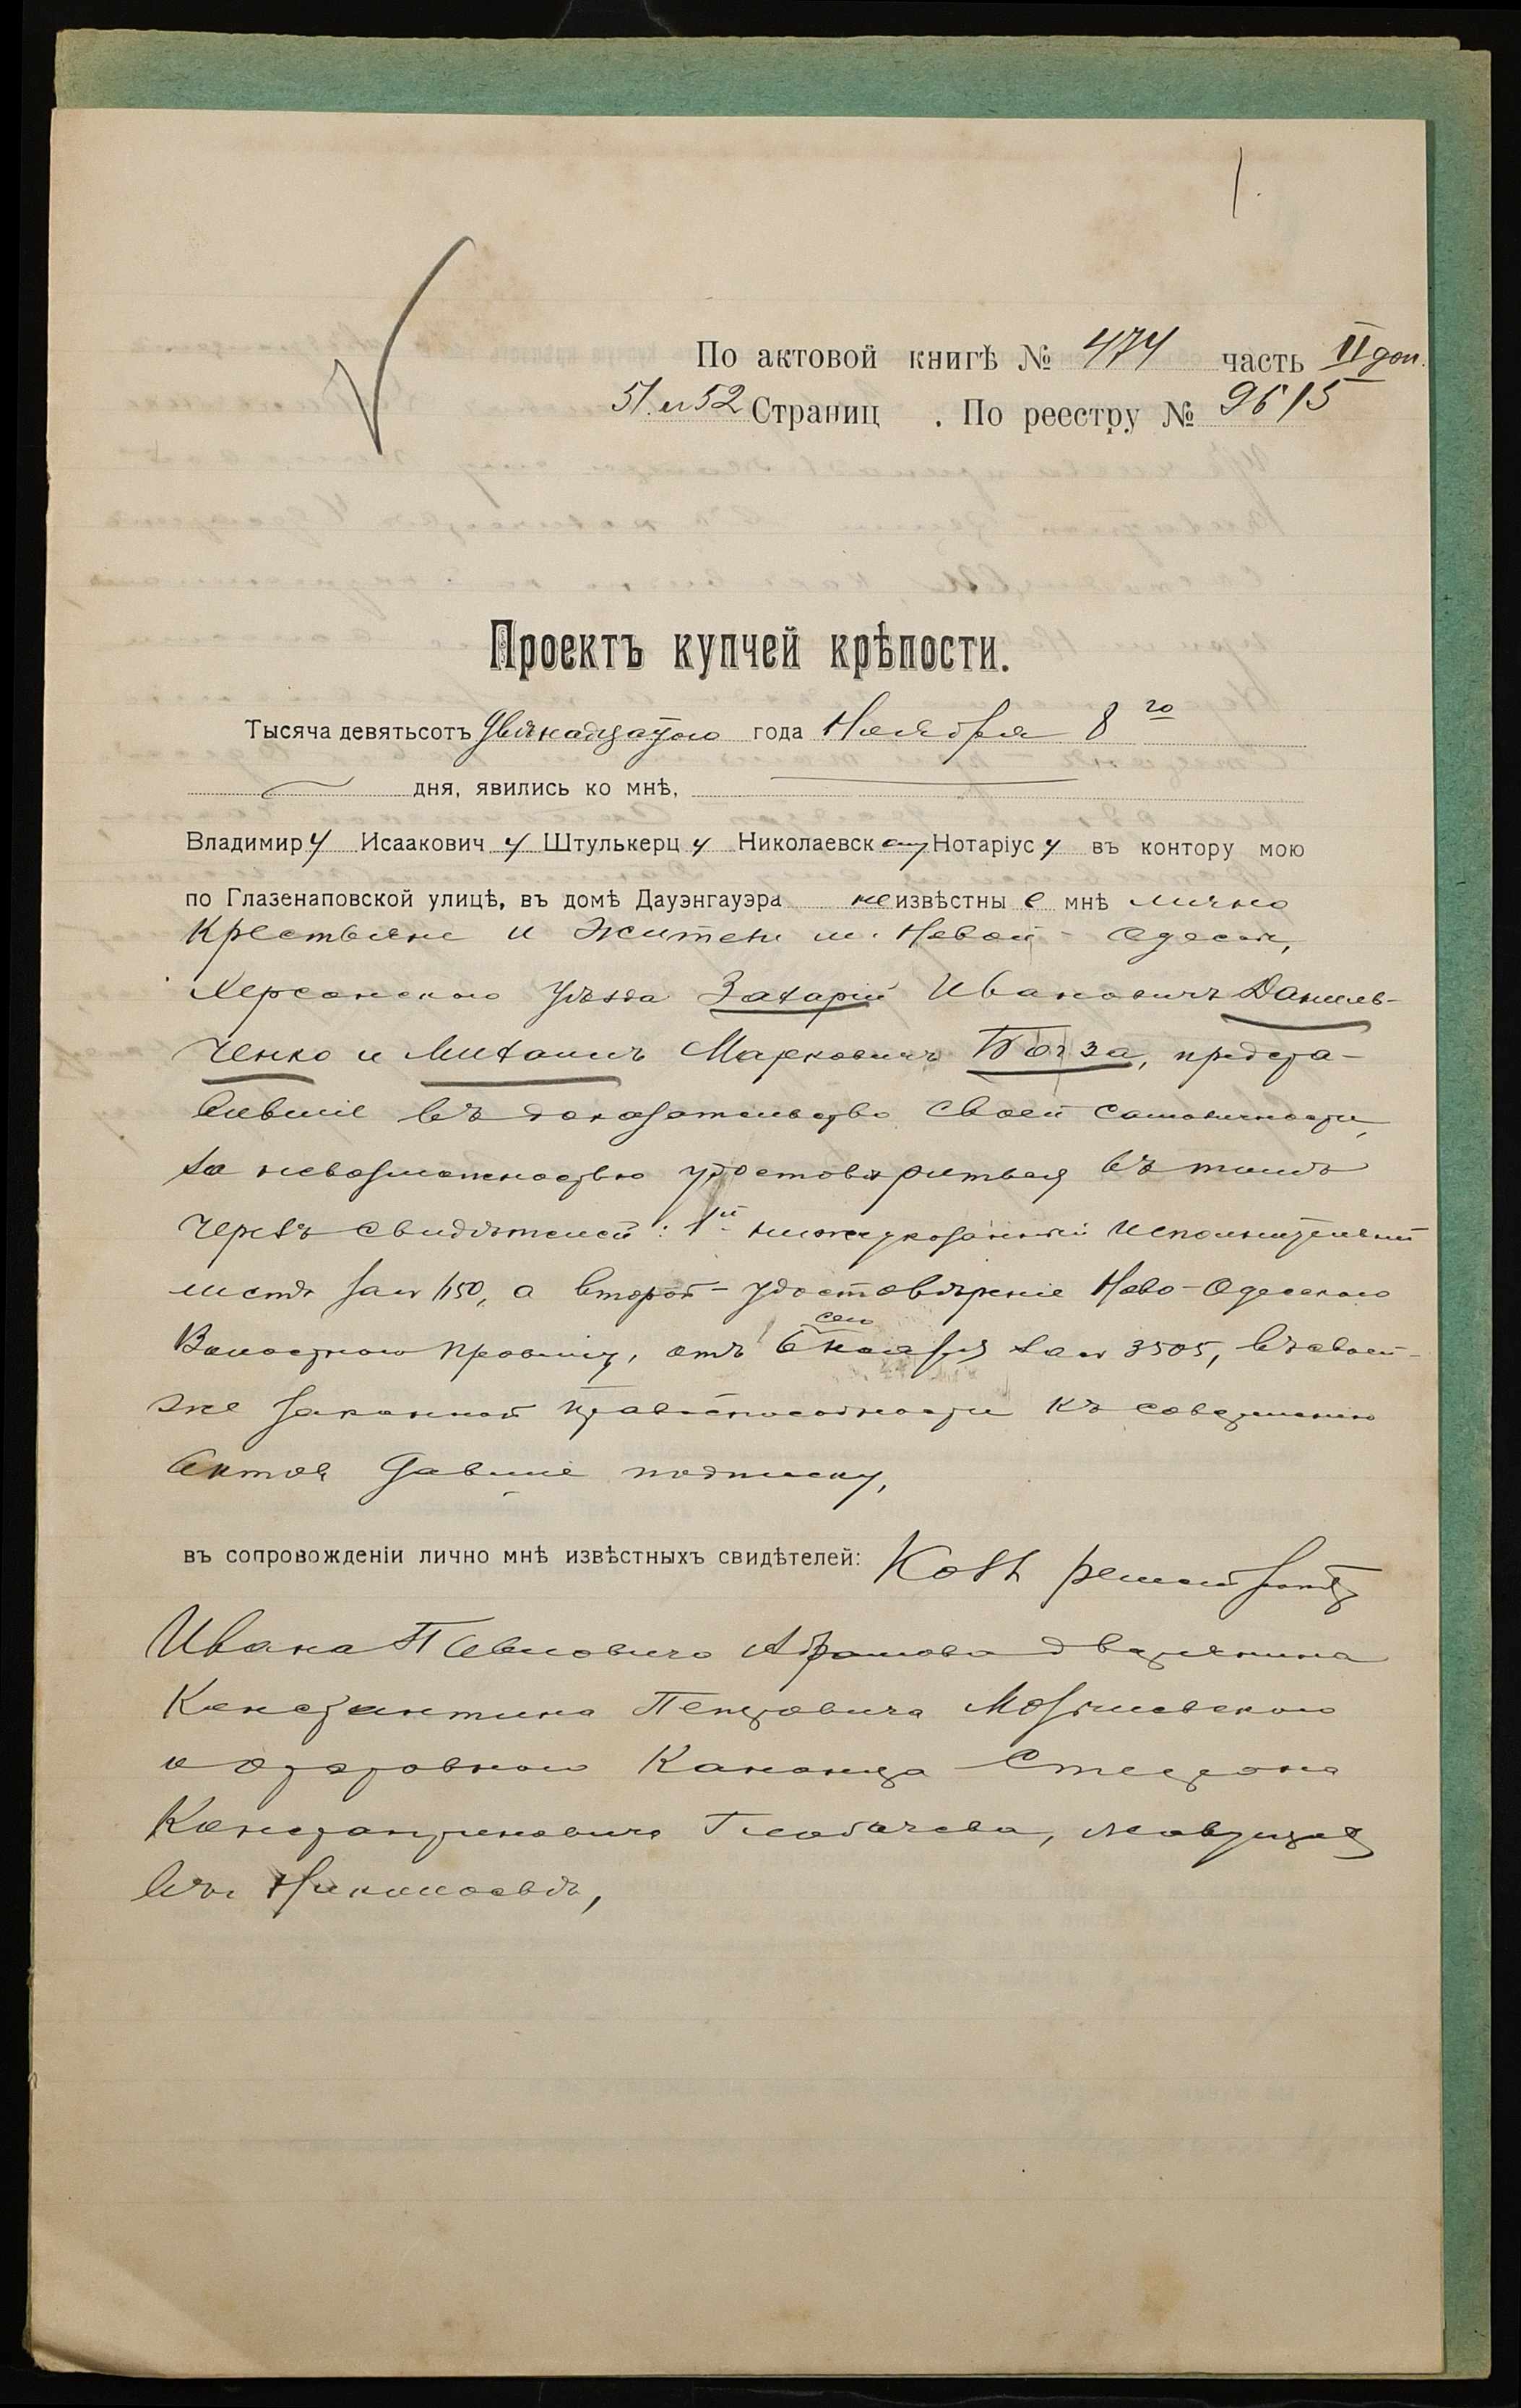 1.
По актовой книгѣ № 474 часть II доп.
51 и 52 Страниц . По реестру № 9615
Проектъ купчей крѣпости.
Тысяча девятьсотъ двѣнадцатого года Ноября 8го
дня, явились ко мнѣ,
Владимиру Исааковичу Штулькерцу Николаевскому Нотаріусу въ контору мою
по Глазенаповской улицѣ, въ домѣ Дауэнгауэра неизвѣстные мнѣ лично
крестьяне и жители м. Новой-Одессы,
Херсонскаго уѣзда Захарій Ивановичъ Даниль-
ченко и Михаилъ Марковичъ, предста-
вившіе въ доказательство своей самоличности,
за невозможностью удостовѣриться въ таковой
черезъ свидѣтелей: 1й нижеуказанный исполнительный
листъ за № 1150, а второй - удостовѣреніе Ново-Одесскаго
Волостного Правленія, отъ 6 сего ноября за № 3505, въ своей-
же законной правоспособности къ совершенію
актовъ давшіе подписку,
въ сопровожденіи лично мнѣ извѣстныхъ свидѣтелей:
Ивана Павловича Абрамова дворянина
Константина Петровича
и Степана
Константиновича живущихъ
въ г. Николаевѣ,